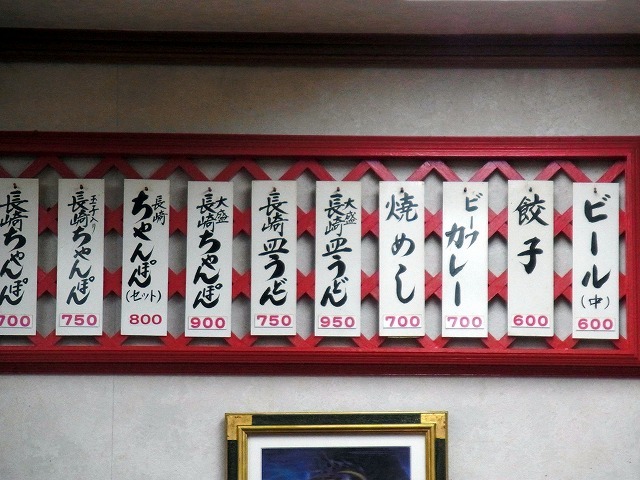 長崎ちゃんぽん
700
玉子入り
長崎ちゃんぽん
750
長崎
ちゃんぽん
(セット)
800
大盛
長崎ちゃんぽん
900
長崎皿うどん
750
大盛
長崎皿うどん
950
焼めし
700
ビーフ
カレー
700
餃子
600
ビール
(中)
600